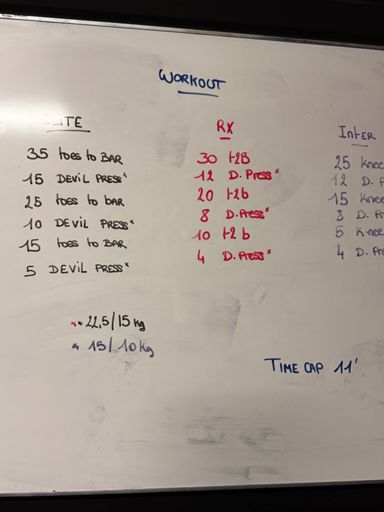 WORKOUT
RX
30 t2B
12 D. Press*
20 t2b
8 D. Press*
10 t2b
4 D. Press*
35 toes to BAR
15 DEVIL PRESS*
25 toes to bar
10 DEVIL PRESS*
15 toes to BAR
5 DEVIL PRESS*
Inter
25 Knee
12 D.
15 Knee
D.
5 Knee
4 D. Pre
** 22,5/15 kg
* 15/10 kg
TIME CAP 11'